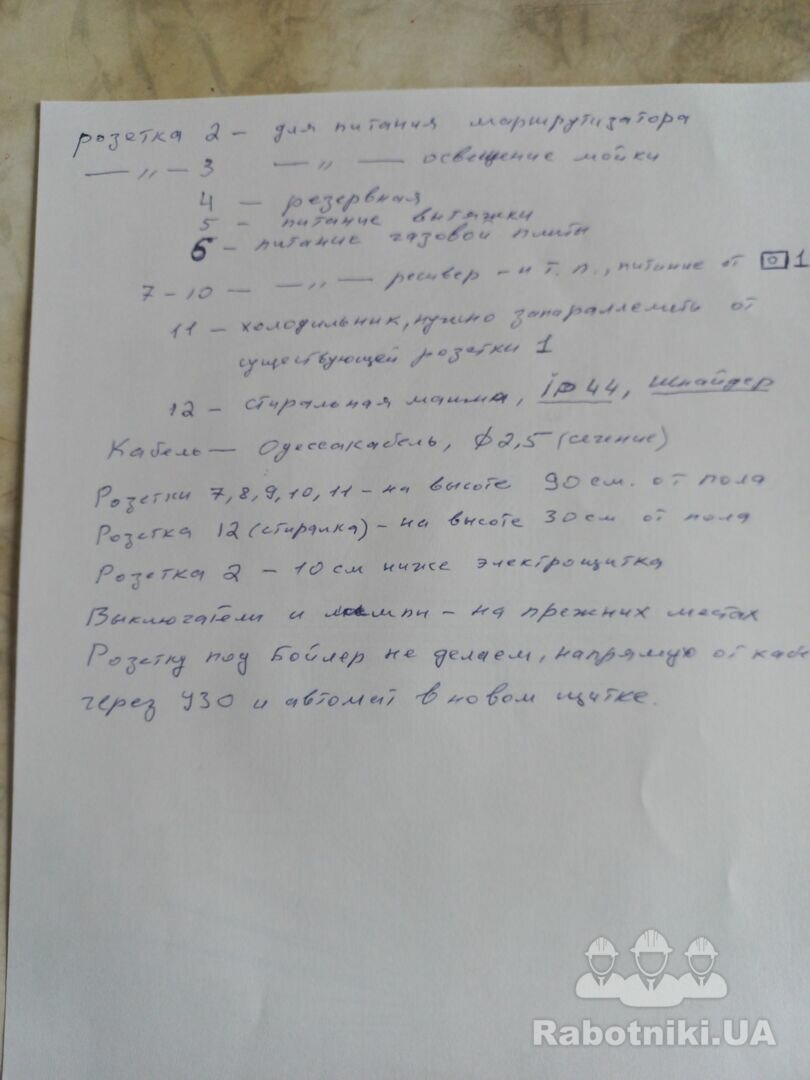 розетка 2 – для питания маршрутизатора
— „ – 3 — „ — освещение мойки
4 – резервная
5 – питание вытяжки
6 – питание газовой плиты
7-10 — — „ — ресивер – и т. п., питание от 1
11 – холодильник, нужно запараллелить от
существующей розетки 1
12 – стиральная машина, iP 44, Шнайдер
Кабель — Одессакабель, ϕ2,5 (сечение)
Розетки 7, 8, 9, 10, 11 – на высоте 90 см. от пола
Розетка 12 (стиралка) – на высоте 30 см от пола
Розетка 2 – 10 см ниже электрощитка
Выключатели и лампы – на прежних местах
Розетку под бойлер не делаем, напрямую от каб
через УЗО и автомат в новом щитке.
Rabotniki.UA